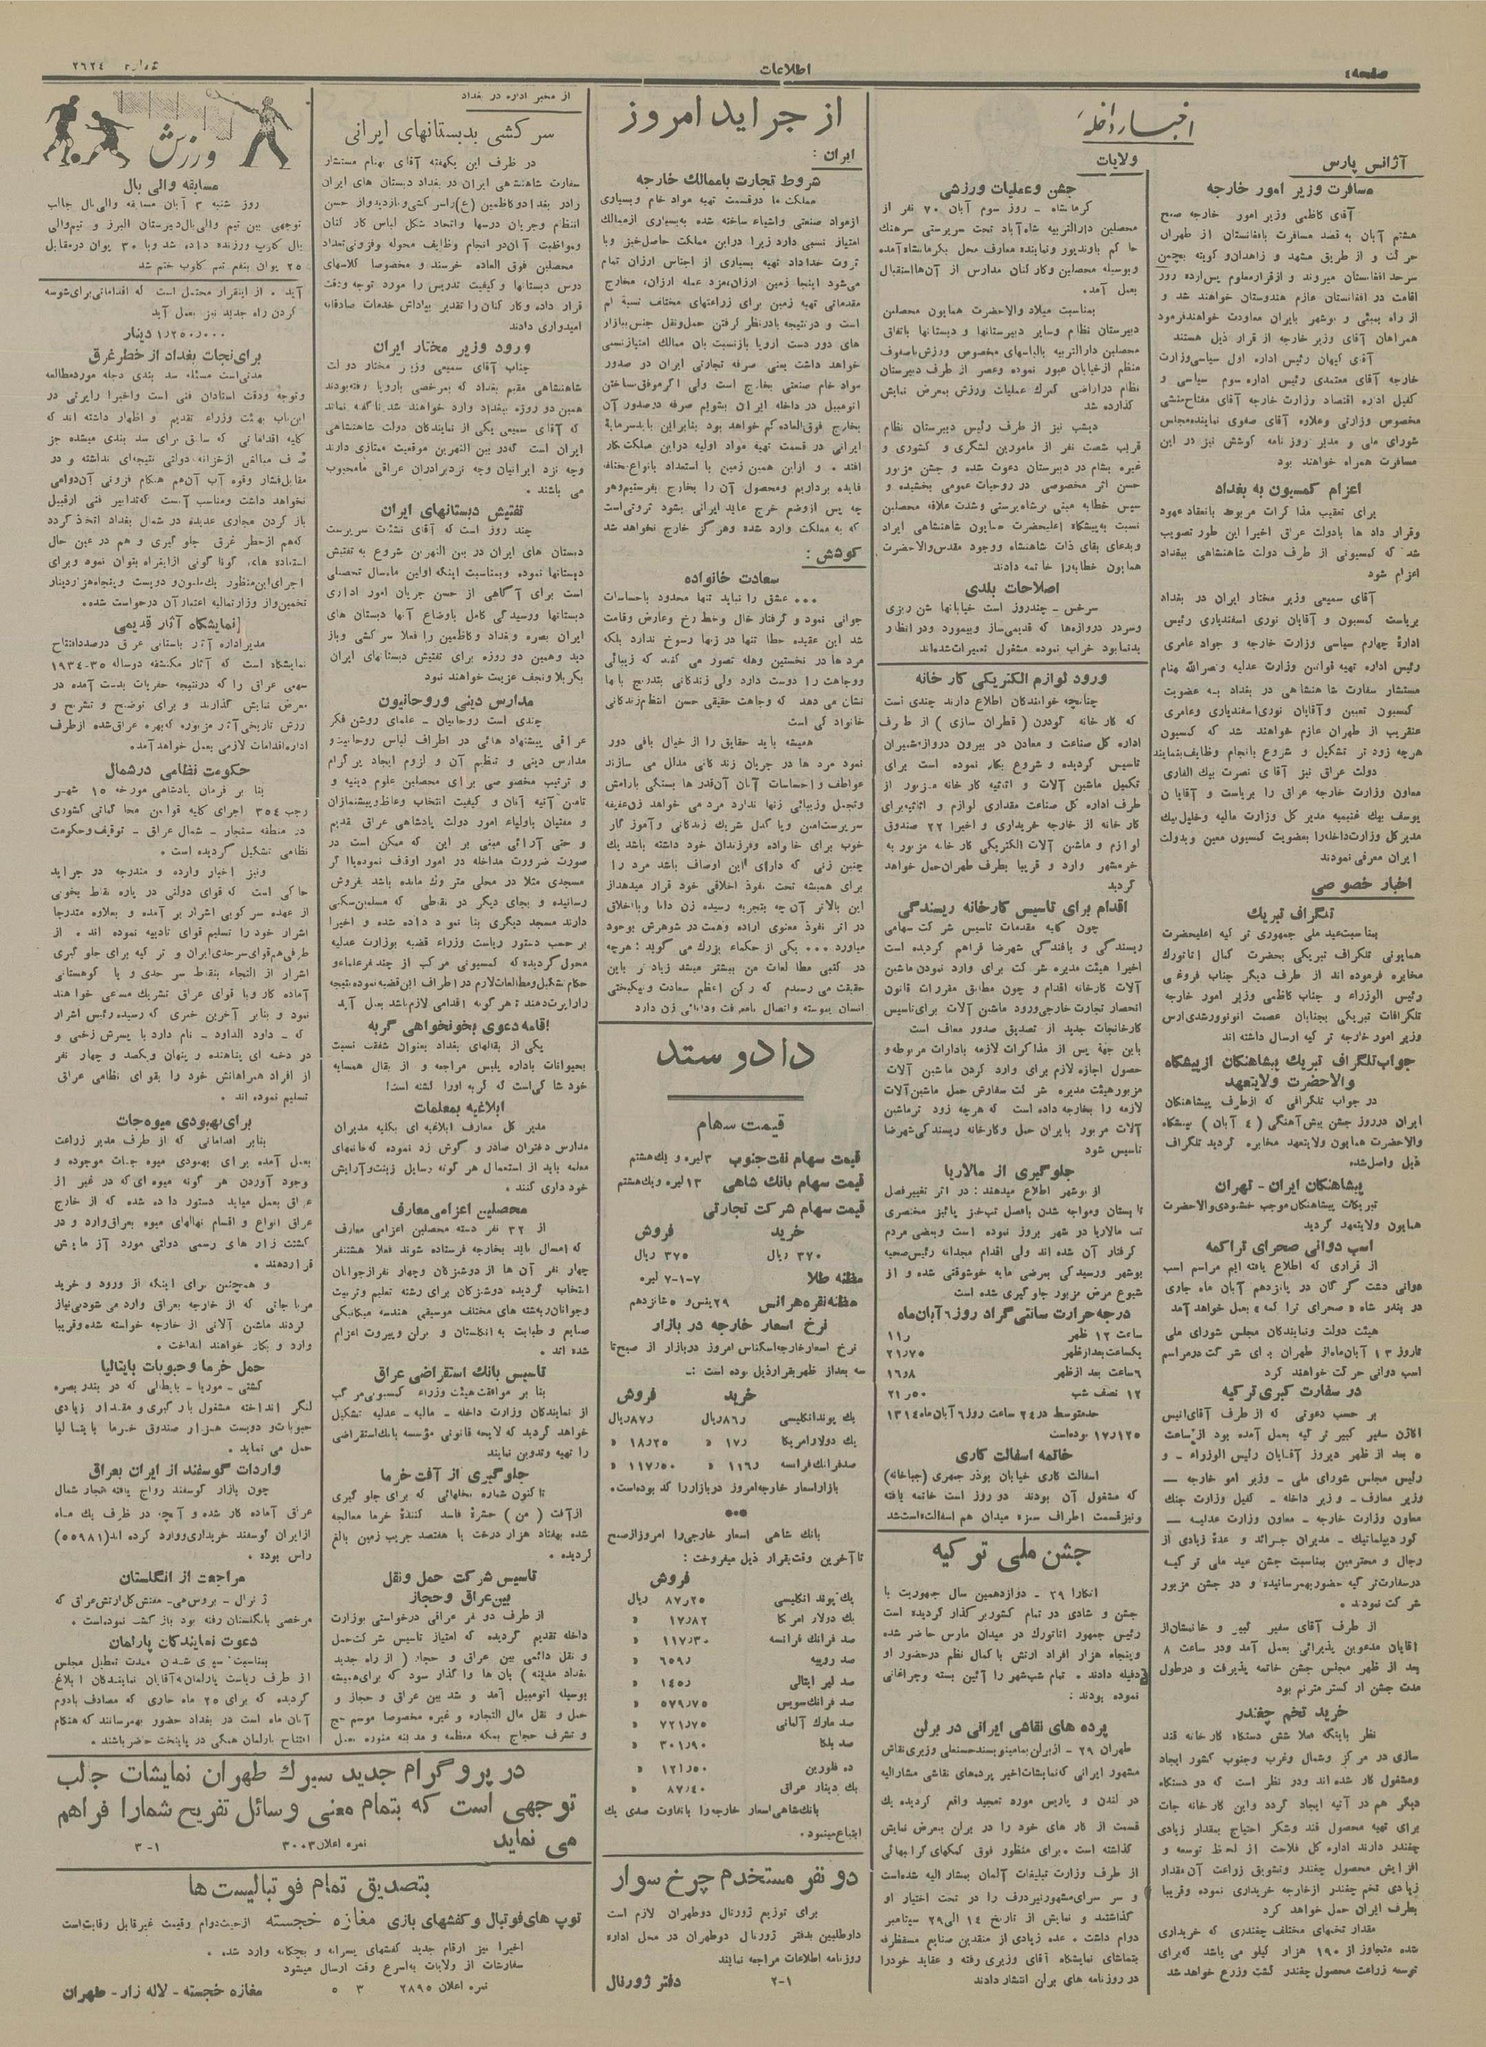 صفحه ٤
اطلاعات
شماره ٢٦٢٤
اخبار داخله
آژانس پارس
مسافرت وزیر امور خارجه
آقای کاظمی وزیر امور خارجه صبح
هشتم آبان به قصد مسافرت بافغانستان از طهران
حرکت و از طریق مشهد و زاهدان و کویته بچمن
سرحد افغانستان میروند و از قرار معلوم پس از ده روز
اقامت در افغانستان عازم هندوستان خواهند شد و
از راه بمبئی و بوشهر بایران معاودت خواهند فرمود
همراهان آقای وزیر خارجه از قرار ذیل هستند
آقای کیهان رئیس اداره اول سیاسی وزارت
خارجه آقای معتمدی رئیس اداره سوم سیاسی و
کفیل اداره اقتصاد وزارت خارجه آقای مفتاح منشی
مخصوص وزارتی و علاوه آقای صفوی نماینده مجلس
شورای ملی و مدیر روزنامه کوشش نیز در این
مسافرت همراه خواهند بود
اعزام کمیسیون به بغداد
برای تعقیب مذاکرات مربوط بانعقاد عهود
وقرار داد ها با دولت عراق اخیرا این طور تصویب
شد که کمیسیونی از طرف دولت شاهنشاهی ببغداد
اعزام شود
آقای سمیعی وزیر مختار ایران در بغداد
بریاست کمسیون و آقایان نوری اسفندیاری رئیس
ادارۀ چهارم سیاسی وزارت خارجه و جواد عامری
رئیس اداره تهیه قوانین وزارت عدلیه و نصرالله بهنام
مستشار سفارت شاهنشاهی در بغداد به عضویت
کمسیون تعیین و آقایان نوری اسفندیاری و عامری
عنقریب از طهران عازم خواهند شد که کمسیون
هرچه زود تر تشکیل و شروع بانجام وظایف بنمایند
دولت عراق نیز آقای نصرت بیك الفاری
معاون وزارت خارجه عراق را بریاست و آقایان
یوسف بیك غنیمه مدیر کل وزارت مالیه و خلیل بیك
مدیر کل وزارت داخله را بعضویت کمسیون معین و بدولت
ایران معرفی نمودند
اخبار خصوصی
تلگراف تبریك
بمناسبت عید ملی جمهوری ترکیه اعلیحضرت
همایونی تلگراف تبریکی بحضرت کمال اتاتورك
مخابره فرموده اند از طرف دیگر جناب فروغی
رئیس الوزراء و جناب کاظمی وزیر امور خارجه
تلگرافات تبریکی بجنابان عصمت اینونو و رشدی ارس
وزیر امور خارجه ترکیه ارسال داشته اند
جواب تلگراف تبریك پیشاهنگان از پیشگاه
والاحضرت ولایتعهد
در جواب تلگرافی که از طرف پیشاهنگان
ایران در روز جشن پیش آهنگی (٤ آبان) پیشگاه
والاحضرت همایون ولایتعهد مخابره گردید تلگراف
ذیل واصل شده
پیشاهنگان ایران - تهران
تبریکات پیشاهنگان موجب خشنودی والاحضرت
همایون ولایتعهد گردید
اسب دوانی صحرای تراکمه
از قراری که اطلاع یافته ایم مراسم اسب
دوانی دشت گرگان در پانزدهم آبان ماه جاری
در بندر شاه « صحرای تراکمه » بعمل خواهد آمد
هیئت دولت و نمایندگان مجلس شورای ملی
تا روز ١٣ آبان ماه از طهران برای شرکت در مراسم
اسب دوانی حرکت خواهند کرد
در سفارت کبری ترکیه
بر حسب دعوتی که از طرف آقای انیس
آکازن سفیر کبیر ترکیه بعمل آمده بود از ساعت
٥ بعد از ظهر دیروز آقایان رئیس الوزراء - و
رئیس مجلس شورای ملی - وزیر امور خارجه —
وزیر معارف - وزیر داخله - کفیل وزارت جنك
معاون وزارت خارجه - معاون وزارت عدلیه —
کور دیپلماتیك - مدیران جرائد و عدۀ زیادی از
رجال و محترمین بمناسبت جشن عید ملی ترکیه
در سفارت ترکیه حضور بهمرسانیده و در جشن مزبور
شرکت نمودند .
از طرف آقای سفیر کبیر و خانمشان از
آقایان مدعوین پذیرائی بعمل آمد و در ساعت ٨
بعد از ظهر مجلس جشن خاتمه پذیرفت و در طول
مدت جشن ارکستر مترنم بود
خرید تخم چغندر
نظر باینکه فعلا شش دستگاه کارخانه قند
سازی در مرکز و شمال و غرب و جنوب کشور ایجاد
و مشغول کار شده اند و در نظر است که دو دستگاه
دیگر هم در آتیه ایجاد گردد و این کارخانه جات
برای تهیه محصول قند و شکر احتیاج بمقدار زیادی
چغندر دارند اداره کل فلاحت از لحاظ توسعه و
افزایش محصول چغندر و تشویق زراعت آن مقدار
زیادی تخم چغندر از خارجه خریداری نموده و قریبا
بطرف ایران حمل خواهد کرد
مقدار تخمهای مختلف چغندری که خریداری
شده متجاوز از ١٩٠ هزار کیلو می باشد که برای
توسعه زراعت محصول چغندر کشت و زرع خواهد شد
ولایات
جشن و عملیات ورزشی
کرمانشاه - روز سوم آبان ٧٠ نفر از
محصلین دارالتربیه شاه آباد تحت سرپرستی سرهنك
حاکم باوندپور و نماینده معارف محل بکرمانشاه آمده
و بوسیله محصلین و کارکنان مدارس از آن ها استقبال
بعمل آمد.
بمناسبت میلاد والاحضرت همایون محصلین
دبیرستان نظام و سایر دبیرستانها و دبستانها باتفاق
محصلین دارالتربیه بالباسهای مخصوص ورزش با صفوف
منظم از خیابان عبور نموده و عصر از طرف دبیرستان
نظام در اراضی گمرك عملیات ورزش بمعرض نمایش
گذارده شد
دیشب نیز از طرف رئیس دبیرستان نظام
قریب شصت نفر از مامورین لشگری و کشوری و
غیره بشام در دبیرستان دعوت شده و جشن مزبور
حسن اثر مخصوصی در روحیات عمومی بخشیده و
سپس خطابه مبنی بر شاه پرستی و شدت علاقه محصلین
نسبت به پیشگاه اعلیحضرت همایون شاهنشاهی ایراد
و بدعای بقای ذات شاهنشاه و وجود مقدس والاحضرت
همایون خطابه را خاتمه دادند
اصلاحات بلدی
سرخس - چند روز است خیابانها شن ریزی
و سردر دروازه ها که قدیمی ساز و بیمورد و در انظار
بدنما بود خراب نموده مشغول تعمیرات شده اند
ورود لوازم الکتریکی کارخانه
چنانچه خوانندگان اطلاع دارند چندی است
که کارخانه گودرن (قطران سازی) از طرف
اداره کل صناعت و معادن در بیرون دروازه شمیران
تاسیس گردیده و شروع بکار نموده است برای
تکمیل ماشین آلات و اثاثیه کارخانه مزبور از
طرف اداره کل صناعت مقداری لوازم و اثاثیه برای
کارخانه از خارجه خریداری و اخیرا ٢٢ صندوق
لوازم و ماشین آلات الکتریکی کارخانه مزبور به
خرمشهر وارد و قریبا بطرف طهران حمل خواهد
گردید
اقدام برای تاسیس کارخانه ریسندگی
چون کلیه مقدمات تاسیس شرکت سهامی
ریسندگی و بافندگی شهرضا فراهم گردیده است
اخیرا هیئت مدیره شرکت برای وارد نمودن ماشین
آلات کارخانه اقدام و چون مطابق مقررات قانون
انحصار تجارت خارجی ورود ماشین آلات برای تاسیس
کارخانجات جدید از تصدیق صدور معاف است
باین جهة پس از مذاکرات لازمه بادارات مربوطه و
حصول اجازه لازم برای وارد کردن ماشین آلات
مزبور هیئت مدیره شرکت سفارش حمل ماشین آلات
لازمه را بخارجه داده است که هرچه زود تر ماشین
آلات مزبور بایران حمل و کارخانه ریسندگی شهرضا
تاسیس شود
جلوگیری از مالاریا
از بوشهر اطلاع میدهند : در اثر تغییر فصل
تابستان و مواجه شدن با فصل تب خیز پائیز مختصری
تب مالاریا در شهر بروز نموده است و بعضی مردم
گرفتار آن شده اند ولی اقدام مجدانه رئیس صحیه
بوشهر و رسیدگی بمرضی مایه خوشوقتی شده و از
شیوع مرض مزبور جلوگیری شده است
درجه حرارت سانتی گراد روز ٦ آبان ماه
ساعت ١٢ ظهر ١١ر
یکساعت بعد از ظهر ٢١ر٧٥
٦ ساعت بعد از ظهر ١٦ر٨
١٢ نصف شب ٢١ر٥٠
حد متوسط در ٢٤ ساعت روز ٦ آبان ماه ١٣١٤
١٧ر١٢٥ بوده است
خاتمه اسفالت کاری
اسفالت کاری خیابان بوذرجمهری (جباخانه)
که مشغول آن بودند دو روز است خاتمه یافته
و نیز قسمت اطراف سبزه میدان هم اسفالت شده است
جشن ملی ترکیه
انکارا ٢٩ - دوازدهمین سال جمهوریت با
جشن و شادی در تمام کشور برگذار گردیده است
رئیس جمهور اتاتورك در میدان مارس حاضر شده
و پنجاه هزار افراد ارتش با کمال نظم در حضور او
دفیله دادند . تمام شب شهر را آئین بسته و چراغانی
نموده بودند :
پرده های نقاشی ایرانی در برلن
طهران ٢٩ - از برلن بما مینویسند حسنعلی وزیری نقاش
مشهور ایرانی که نمایشات اخیر پرده های نقاشی مشارالیه
در لندن و پاریس مورد تمجید واقع گردیده یك
قسمت از کار های خود را در برلن بمعرض نمایش
گذاشته است . برای منظور فوق کمکهای گرانبهائی
از طرف وزارت تبلیغات آلمان بمشار الیه شده است
و سرسرای مشهور نیردرف را در تحت اختیار او
گذاشتند و نمایش از تاریخ ١٤ الی ٢٩ سپتامبر
دوام داشت . عده زیادی از منقدین صنایع مستظرفه
بتماشای نمایشگاه آقای وزیری رفته و عقاید خود را
در روزنامه های برلن انتشار دادند
از جراید امروز
ایران :
شروط تجارت با ممالك خارجه
مملکت ما در قسمت تهیه مواد خام و بسیاری
از مواد صنعتی و اشیاء ساخته شده به بسیاری از ممالك
امتیاز نسبی دارد زیرا در این مملکت حاصل خیز و با
ثروت خداداد تهیه بسیاری از اجناس ارزان تمام
می شود اینجا زمین ارزان، مزد عمله ارزان، مخارج
مقدماتی تهیه زمین برای زراعتهای مختلف نسبة کم
است و در نتیجه با در نظر گرفتن حمل و نقل جنس ببازار
های دور دست اروپا باز نسبت بان ممالك امتیاز نسبی
خواهد داشت یعنی صرفه تجارتی ایران در صدور
مواد خام صنعتی بخارج است ولی اگر موفق بساختن
اتومبیل در داخله ایران بشویم صرفه در صدور آن
بخارج فوق العاده کم خواهد بود بنابراین باید سرمایۀ
ایرانی در قسمت تهیه مواد اولیه در این مملکت بکار
افتد . و از این همین زمین با استعداد بانواع مختلف
فایده برداریم و محصول آن را بخارج بفرستیم و هر
چه پس از وضع خرج عاید ایرانی بشود ثروتی است
که به مملکت وارد شده و هرگز خارج نخواهد شد
کوشش :
سعادت خانواده
... عشق را نباید تنها محدود باحساسات
جوانی نمود و گرفتار خال و خط رخ و عارض و قامت
شد این عقیده خطا تنها در زنها رسوخ ندارد بلکه
مرد ها در نخستین وهله تصور می کنند که زیبائی
و وجاهت را دوست دارد ولی زندگانی بتدریج بانها
نشان می دهد که وجاهت حقیقی حسن انتظام زندگانی
خانوادگی است
همیشه باید حقایق را از خیال بافی دور
نمود مرد ها در جریان زندگانی مدلل می سازند
عواطف و احساسات آنان آن قدر ها بستگی بارامش
و تجمل و زیبائی زنها ندارد مرد می خواهد زن عفیفه
سرپرست امن و یا کدل شریك زندگانی و آموزگار
خوب برای خانواده و فرزندان خود داشته باشد یك
چنین زنی که دارای این اوصاف باشد مرد را
برای همیشه تحت نفوذ اخلاقی خود قرار میدهد از
این بالاتر آن چه بتجربه رسیده زن دانا و با اخلاق
در اثر نفوذ معنوی اراده و همت در شوهرش بوجود
میاورد ... یکی از حکماء بزرك می گوید : هرچه
در کتبی مطالعات من بیشتر میشد زیادتر باین
حقیقت می رسیدم که رکن اعظم سعادت و نیکبختی
انسان پیوسته و اتصال بمعرفت و دانائی زن دارد
داد و ستد
قیمت سهام
قیمت سهام نفت جنوب ٣ لیره و یك هشتم
قیمت سهام بانك شاهی ١٣ لیره و یك هشتم
قیمت سهام شرکت تجارتی
خرید فروش
٣٧٠ ریال ٣٧٥ ریال
مظنه طلا ٧-١-٧ لیره
مظنه نقره هر انس ٢٩ پنس و ٥ شانزدهم
نرخ اسعار خارجه در بازار
نرخ اسعار خارجه اسکناس امروز در بازار از صبح تا
سه بعد از ظهر بقرار ذیل بوده است :-
خرید فروش
یك پوند انگلیسی ٨٦ر ریال ٨٧ر ریال
یك دولار امریکا ١٧ر « ١٨ر٢٥ «
صد فرانك فرانسه ١١٦ر « ١١٧ر٥٠ «
بازار اسعار خارجه امروز در بازار را کد بوده است.
***
بانك شاهی اسعار خارجی را امروز از صبح
تا آخرین وقت بقرار ذیل میفروخت :
فروش
یك پوند انگلیسی ٨٧ر٢٥ ریال
یك دولار امریکا ١٧ر٨٢ «
صد فرانك فرانسه ١١٧ر٣٠ «
صد روپیه ٦٥٩ر «
صد لیر ایتالی ١٤٥ر «
صد فرانك سویس ٥٧٩ر٧٥ «
صد مارك آلمانی ٧٢١ر٧٥ «
صد بلگا ٣٠١ر٩٠ «
ده فلورین ١٢١ر٥٠ «
یك دینار عراق ٨٧ر٤٠ «
بانك شاهی اسعار خارجه را بتفاوت صدی یك
ابتیاع مینمود .
دو نفر مستخدم چرخ سوار
برای توزیع ژورنال دو طهران لازم است
داوطلبین بدفتر ژورنال دو طهران در محل اداره
روزنامه اطلاعات مراجعه نمایند
٢-١ دفتر ژورنال
از مخبر اداره در بغداد
سرکشی بدبستانهای ایرانی
در ظرف این یکهفته آقای بهنام مستشار
سفارت شاهنشاهی ایران در بغداد دبستان های ایران
را در بغداد و کاظمین (ع) را سرکشی و بازدید و از حسن
انتظام و جریان درسها و اتحاد شکل لباس کارکنان
و مواظبت آنان در انجام وظایف محوله و فزونی تعداد
محصلین فوق العاده خرسند و مخصوصا کلاسهای
درس دبستانها و کیفیت تدریس را مورد توجه و دقت
قرار داده و کارکنان را تقدیر بپاداش خدمات صادقانه
امیدواری دادند
ورود وزیر مختار ایران
جناب آقای سمیعی وزیر مختار دولت
شاهنشاهی مقیم بغداد که بمرخصی باروپا رفته بودند
همین دو روزه ببغداد وارد خواهند شد ناگفته نماند
که آقای سمیعی یکی از نمایندگان دولت شاهنشاهی
ایران است که در بین النهرین موقعیت ممتازی دارند
و چه نزد ایرانیان و چه نزد برادران عراقی ما محبوب
می باشند .
تفتیش دبستانهای ایران
چند روز است که آقای نشئت سرپرست
دبستان های ایران در بین النهرین شروع به تفتیش
دبستانها نموده و بمناسبت اینکه اولین ماه سال تحصیلی
است برای آگاهی از حسن جریان امور اداری
دبستانها و رسیدگی کامل باوضاع آنها دبستان های
ایران بصره و بغداد و کاظمین را فعلا سرکشی و باز
دید و همین دو روزه برای تفتیش دبستانهای ایران
بکربلا و نجف عزیمت خواهند نمود
مدارس دینی و روحانیون
چندی است روحانیان - علمای روشن فکر
عراقی پیشنهاد هائی در اطراف لباس روحانیت و
مدارس دینی و تنظیم آن و لزوم ایجاد پرگرام
و ترتیب مخصوصی برای محصلین علوم دینیه و
تامین آتیه آنان و کیفیت انتخاب وعاظ و پیشنمازان
و مفتیان باولیاء امور دولت پادشاهی عراق تقدیم
و حتی آرائی مبنی بر این که ممکن است در
صورت ضرورت مداخله در امور اوقف نموده با اگر
مسجدی مثلا در محلی متروك مانده باشد بفروش
رسانیده و بجای دیگر در نقطی که مسلمین سکنی
دارند مسجد دیگری بنا نمود داده شده و اخیرا
بر حسب دستور ریاست وزراء قضیه بوزارت عدلیه
محول گردیده که کمسیونی مرکب از چند نفر علماء و
حکام تشکیل و مطالعات لازم در اطراف این قضیه نموده نتیجه
را راپرت دهند تا هر گونه اقدامی لازم باشد بعمل آید
اقامه دعوی بخونخواهی گربه
یکی از بقالهای بغداد بعنوان شفقت نسبت
بحیوانات باداره پلیس مراجعه و از بقال همسایه
خود شاکی است که گربه اورا کشته است!
ابلاغیه بمعلمات
مدیر کل معارف ابلاغیه ای بکلیه مدیران
مدارس دختران صادر و گوش زد نموده که خانمهای
معلمه باید از استعمال هر گونه وسایل زینت و آرایش
خود داری کنند .
محصلین اعزامی معارف
از ٣٢ نفر دسته محصلین اعزامی معارف
که امسال باید بخارجه فرستاده شوند فعلا هشت نفر
چهار نفر آن ها از دوشیزگان و چهار نفر از جوانان
انتخاب گردیده دوشیزگان برای رشته تعلیم و تربیت
و جوانان رشته های مختلف موسیقی هندسه میکانیکی
صنایع و طبابت به انگلستان و برلن و بیروت اعزام
شده اند .
تاسیس بانك استقراضی عراق
بنا بر موافقت هیئت وزراء کمسیونی مرکب
از نمایندگان وزارت داخله - مالیه - عدلیه تشکیل
خواهد گردید که لایحه قانونی مؤسسه بانك استقراضی
را تهیه و تدوین نمایند
جلوگیری از آفت خرما
تاکنون شماره نخلهائی که برای جلوگیری
از آفت (من) حشرۀ فاسد کنندۀ خرما معالجه
شده بهفتاد هزار درخت با هفتصد جریب زمین بالغ
گردیده .
تاسیس شرکت حمل و نقل
بین عراق و حجاز
از طرف دو نفر عراقی درخواستی بوزارت
داخله تقدیم گردیده که امتیاز تاسیس شرکت حمل
و نقل دائمی بین عراق و حجاز (از راه جدید
بغداد مدینه) بان ها را واگذار سود که برای همیشه
بوسیله اتومبیل آمد و شد بین عراق و حجاز و
حمل و نقل مال التجاره و غیره مخصوصا موسم حج
و تشرف حجاج بمکه معظمه و مدینه منوره بعمل
ورزش
مسابقه والی بال
روز شنبه ٣ آبان مسابقه والی بال جالب
توجهی بین تیم والی بال دبیرستان البرز و تیم والی
بال کلوپ ورزنده داده شد و با ٣٠ پوان در مقابل
٢٥ پوان بنفع تیم کلوپ ختم شد
آید . از اینقرار محتمل است که اقداماتی برای شوسه
کردن راه جدید نیز بعمل آید
١٫٢٥٠٫٠٠٠ دینار
برای نجات بغداد از خطر غرق
مدتی است مسئله سد بندی دجله مورد مطالعه
و توجه و دقت استادان فنی است و اخیرا راپرتی در
این باب بهئت وزراء تقدیم و اظهار داشته اند که
کلیه اقداماتی که سابق برای سد بندی میشده جز
صرف مبالغی از خزانه دولتی نتیجه ای نداشته و در
مقابل فشار و قوه آب آن هم هنگام فزونی آن دوامی
نخواهد داشت و مناسب آنست که تدابیر فنی از قبیل
باز کردن مجاری عدیده در شمال بغداد اتخاذ گردد
که هم از خطر غرق جلوگیری و هم در عین حال
استفاده های گوناگونی از اینراه بتوان نمود و برای
اجرای این منظور یك ملیون و دویست و پنجاه هزار دینار
تخمین و از وزارت مالیه اعتبار آن درخواست شده.
نمایشگاه آثار قدیمی
مدیر اداره آثار باستانی عراق در صدد افتتاح
نمایشگاه است که آثار مکتشفه دو ساله ٣٥-١٩٣٤
سهمی عراق را که در نتیجه حفریات بدست آمده در
معرض نمایش گذارند و برای توضیح و تشریح و
ارزش تاریخی آثار مزبوره که بهره عراق شده از طرف
اداره اقدامات لازمی بعمل خواهد آمد.
حکومت نظامی در شمال
بنا بر فرمان پادشاهی مورخه ١٥ شهر
رجب ٣٥٤ اجرای کلیه قوانین محاکماتی کشوری
در منطقه سنجار - شمال عراق - توقیف و حکومت
نظامی تشکیل گردیده است .
و نیز اخبار وارده و مندرجه در جراید
حاکی است که قوای دولتی در پاره نقاط بخوبی
از عهده سرکوبی اشرار بر آمده و بعلاوه متدرجا
اشرار خود را تسلیم قوای تادیبیه نموده اند . از
طرفی هم قوای سرحدی ایران و ترکیه برای جلوگیری
اشرار از التجاء بنقاط سرحدی و یا کوهستانی
آماده کار و با قوای عراق تشریك مساعی خواهند
نمود و بنابر آخرین خبری که رسیده رئیس اشرار
که - داود الداود - نام دارد با پسرش زخمی و
در دخمه ای پناهنده و پنهان و یکصد و چهار نفر
از افراد همراهانش خود را بقوای نظامی عراق
تسلیم نموده اند .
برای بهبودی میوه جات
بنابر اقداماتی که از طرف مدیر زراعت
بعمل آمده برای بهبودی میوه جات موجوده و
وجود آوردن هر گونه میوه ای که در غیر از
عراق بعمل میاید دستور داده شده که از خارج
عراق انواع و اقسام نهالهای میوه بعراق وارد و در
کشت زار های رسمی دولتی مورد آزمایش
قرار دهند .
و همچنین برای اینکه از ورود و خرید
مرباجاتی که از خارجه بعراق وارد می شود بی نیاز
گردند ماشین آلاتی از خارجه خواسته شده و قریبا
وارد و بکار خواهند انداخت .
حمل خرما و حبوبات بایتالیا
کشتی - موریا - بایطالی که در بندر بصره
لنگر انداخته مشغول بارگیری و مقدار زیادی
حبوبات و دویست هزار صندوق خرما بایتالیا
حمل می نماید .
واردات گوسفند از ایران بعراق
چون بازار گوسفند رواج یافته تجار شمال
عراق آماده کار شده و آنچه در ظرف یك ماه
از ایران گوسفند خریداری و وارد کرده اند (٥٥٩٨١)
راس بوده .
مراجعت از انگلستان
ژنرال - بروس هی - مفتش کل ارتش عراق که
مرخصی بانگلستان رفته بود باز گشت نموده است .
دعوت نمایندگان پارلمان
بمناسبت سپری شدن مدت تعطیل مجلس
از طرف ریاست پارلمان به آقایان نمایندگان ابلاغ
گردیده که برای ٢٥ ماه جاری که مصادف با دوم
آبان ماه است در بغداد حضور بهمرسانند که هنگام
افتتاح پارلمان همگی در پایتخت حاضر باشند .
در پروگرام جدید سیرك طهران نمایشات جالب
توجهی است که بتمام معنی وسائل تفریح شمارا فراهم
می نماید
نمره اعلان ٣٠٠٣
٣-١
بتصدیق تمام فوتبالیست ها
توپ های فوتبال و کفشهای بازی مغازه خجسته از حیث دوام و قیمت غیر قابل رقابت است
اخیرا نیز ارقام جدید کفشهای پسرانه و بچگانه وارد شده .
سفارشات از ولایات به اسرع وقت ارسال میشود
نمره اعلان ٢٨٩٥ ٣ ٥
مغازه خجسته - لاله زار - طهران